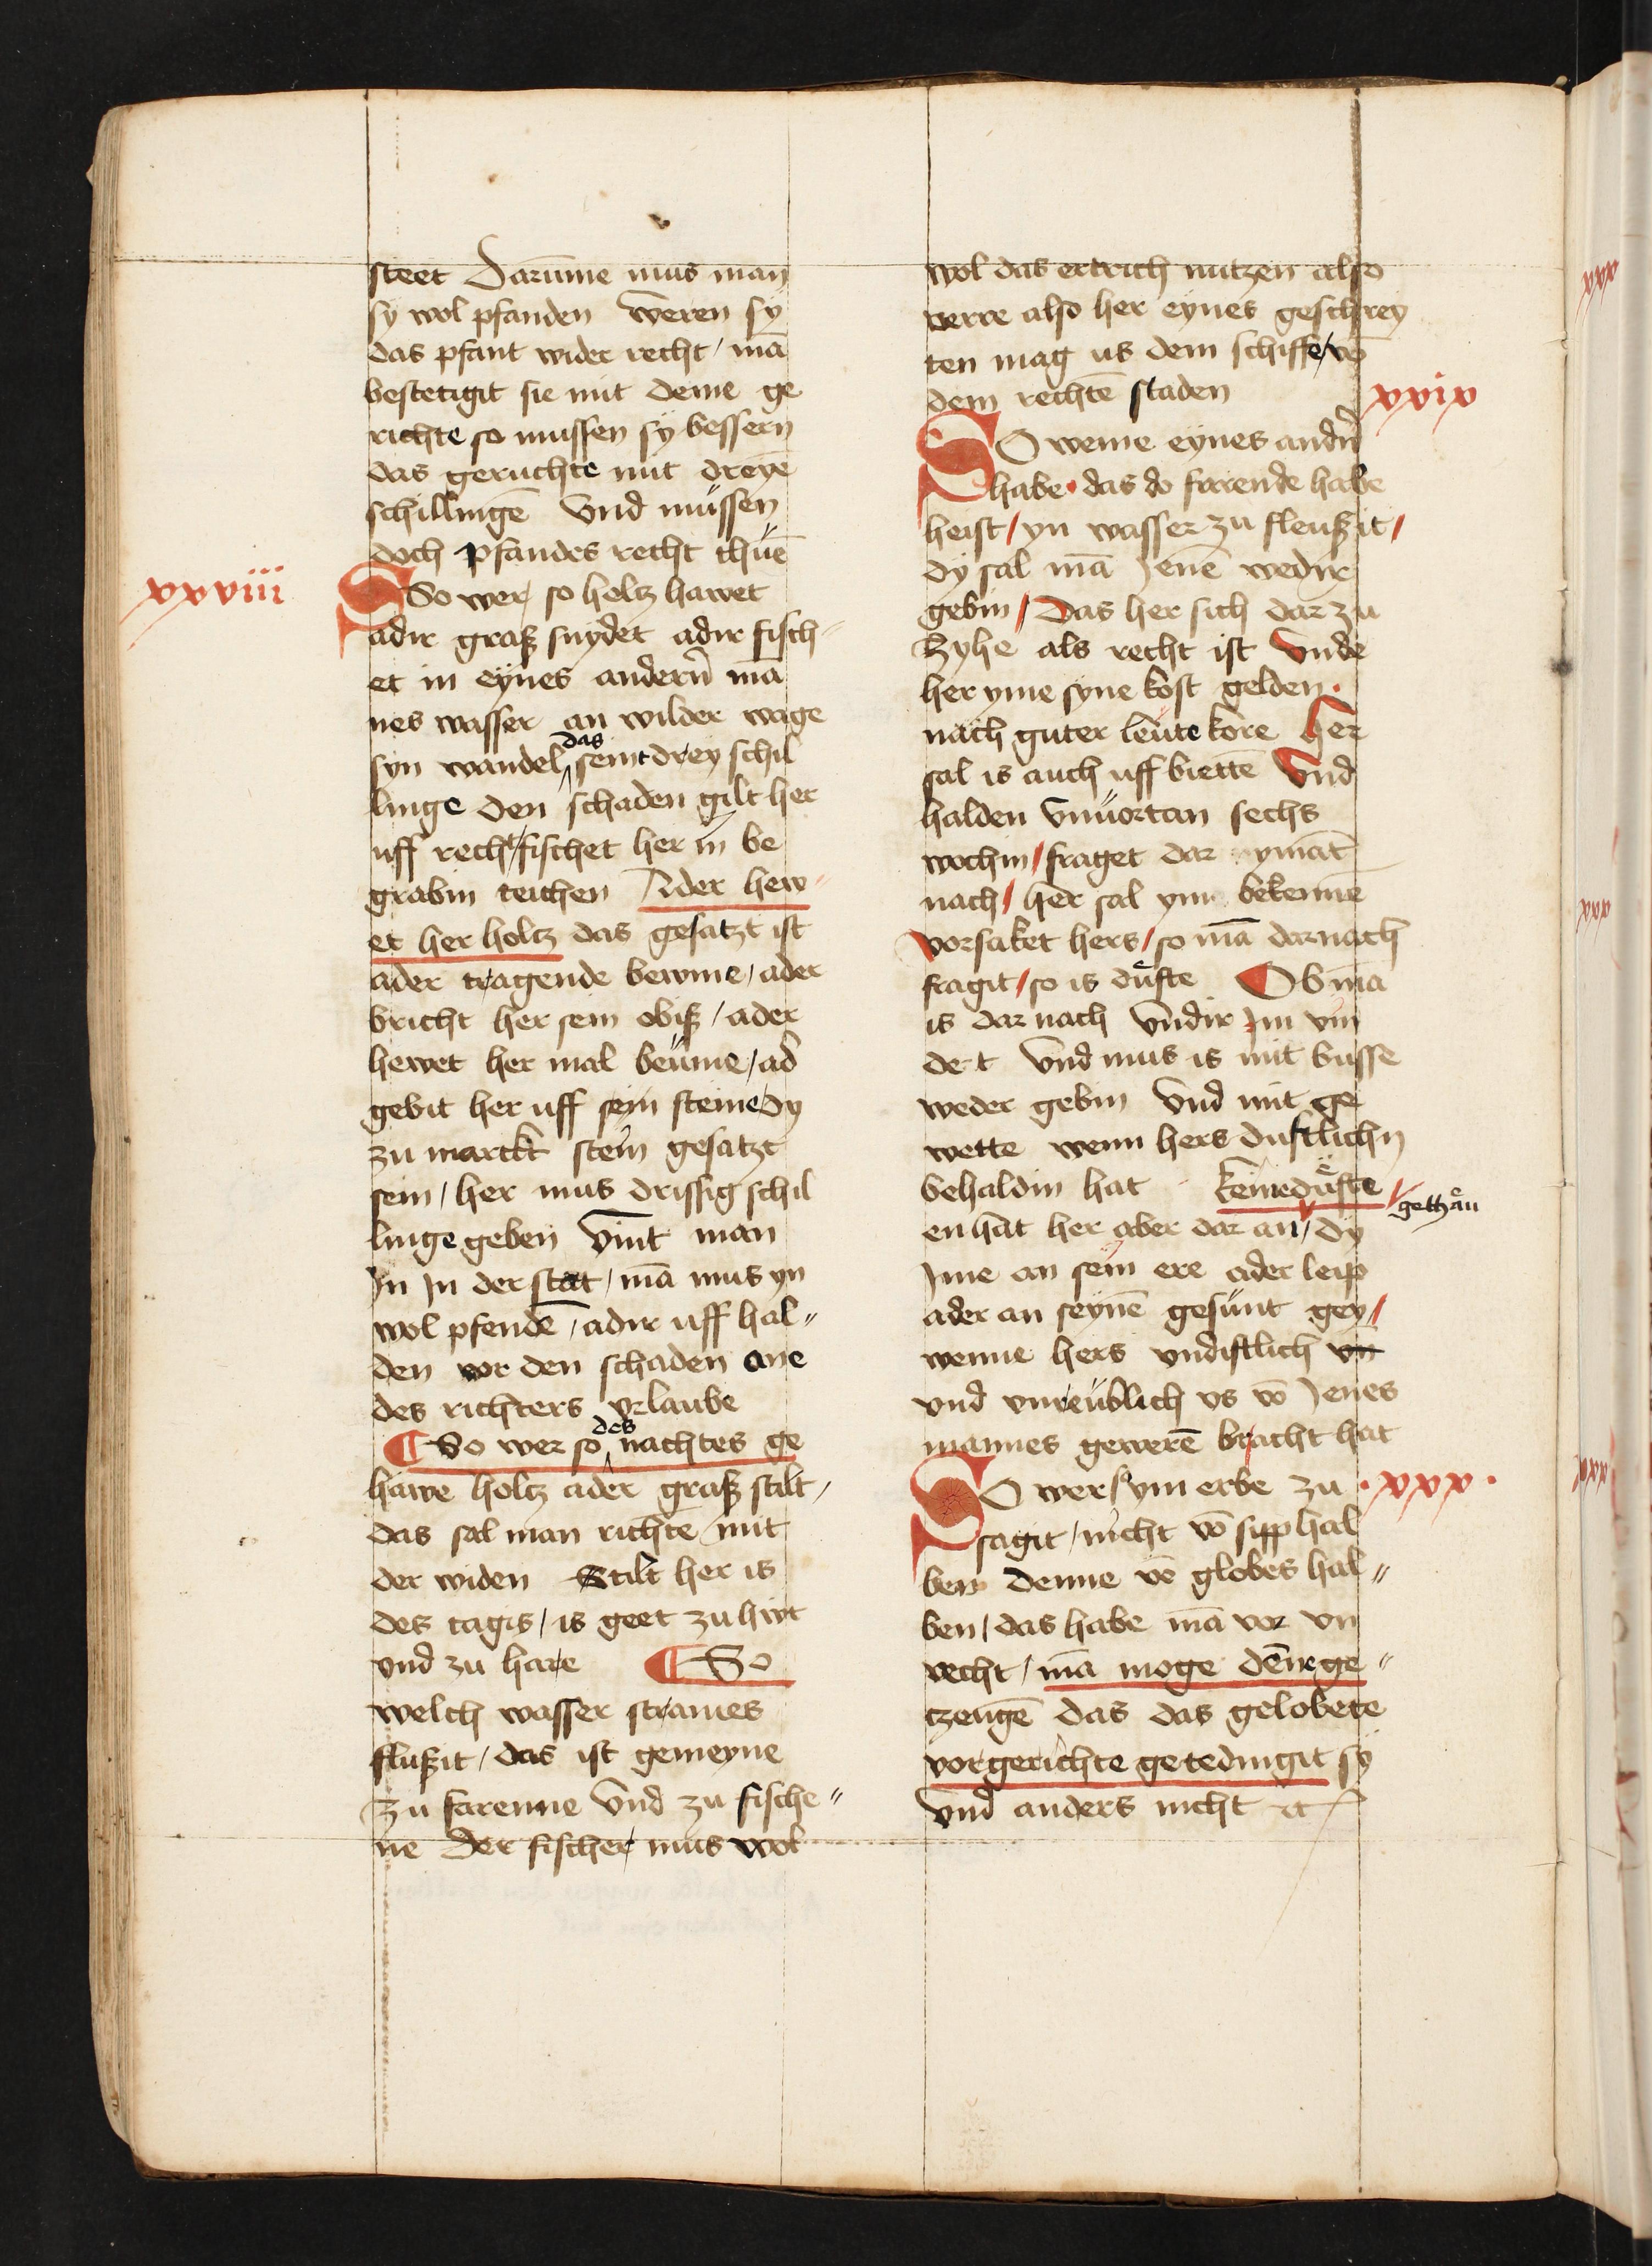 steet Darum̄e mus man
sy wol pfanden weren sy
das pfant wider recht / mā
bestetigit sie mit deme ge
richte so mussen sy bessern
das geruchte mit dreyē
schillingē Vnd müssen
doch pfandes recht thuē
xxviii
So wer so holtz hawet
adir graß snydet adir fisch-
et in eynes andern̄ mā
nes wasser an wilder wage
syn wandel das seint drey schil
linge den schaden gilt her
uff recht / fischet her in be
grabin teichen Ader hew-
et her holtz das gesatzt ist
ader tragende bewme / ader
bricht her sein obiß / ader
hewet her mal beume / ad
gebit her uff sein steine dy
zu marckt stein gesatzt
sein / her mus drissig schil
linge geben Vint man
In In der stat / mā mus yn
wol pfendē / adir uff hal"
den vor den schaden ane
des richters vrlaube
¶ So wer so des nachtes ge
hawe holtz ader graß stilt /
das sal man richte mit
der widen Stilt her is
des tagis / is geet zu hwt
vnd zu hare ¶ So
welch wasser strames
flußit / das ist gemeyne
zu farenne Vnd zu fische"
ne Der fischer mus wol
wol das ertrich nutzen also
verre also her eynes geschrey
ten mag us dem schiffe / vō
dem rechtē staden
xxix
So weme eynes andn̄
habe das do farende habe
heist / yn wasser zu fleußit /
dy sal mā Jenē wedir
gebin / Das her sich dar zu
Zyhe als recht ist Vnde
her yme syne kost gelden
nach guter leute kore her
sal is auch uff biettē Vnd
halden Vnuortan sechs
wochin / fraget dar nymāt
nach / her sal ym bekennē
vorsaket hers / so mā darnach
fragit / so is dufte Ob mā
is dar nach Vndir Im vin
det Vnd mus is mit busse
weder gebin Vnd mit ge
wette wenn hers duftlichn
behaldin hat keine dufte
en hat her aber dar an / gethan dy
Jme an sein ere ader leip
ader an seynē gesunt gey /
wenne hers vndiftlich vn̄
vnd vnreublich vs vō Jenes
mannes gewerē bracht hat
·xxx·
So wer sym erbe zu
sagit / nicht vō sipp hal
ben denne vō globes hal"
ben / das habe mā vor vn
recht / mā moge dēne ge"
tzeugē das das gelobete
vor gerichte getedingit sy
Vnd anders nicht etc